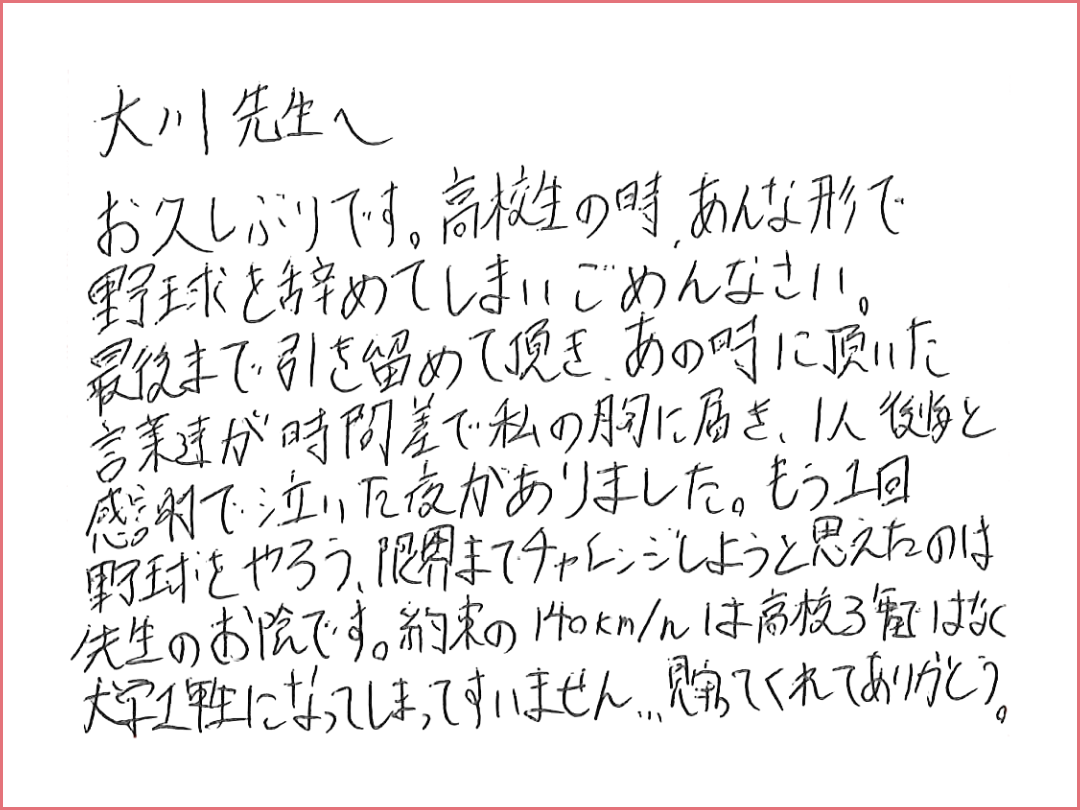 大川先生へ
お久しぶりです。高校生の時、あんな形で
野球を辞めてしまいごめんなさい。
最後まで引き留めて頂き、あの時に頂いた
言葉達が時間差で私の胸に届き、1人後悔と
感謝で泣いた夜がありました。もう1回
野球をやろう、限界までチャレンジしようと思えたのは
先生のお陰です。約束の140km/hは高校3年ではなく
大学1年生になってしまってすいません...見守ってくれてありがとう。